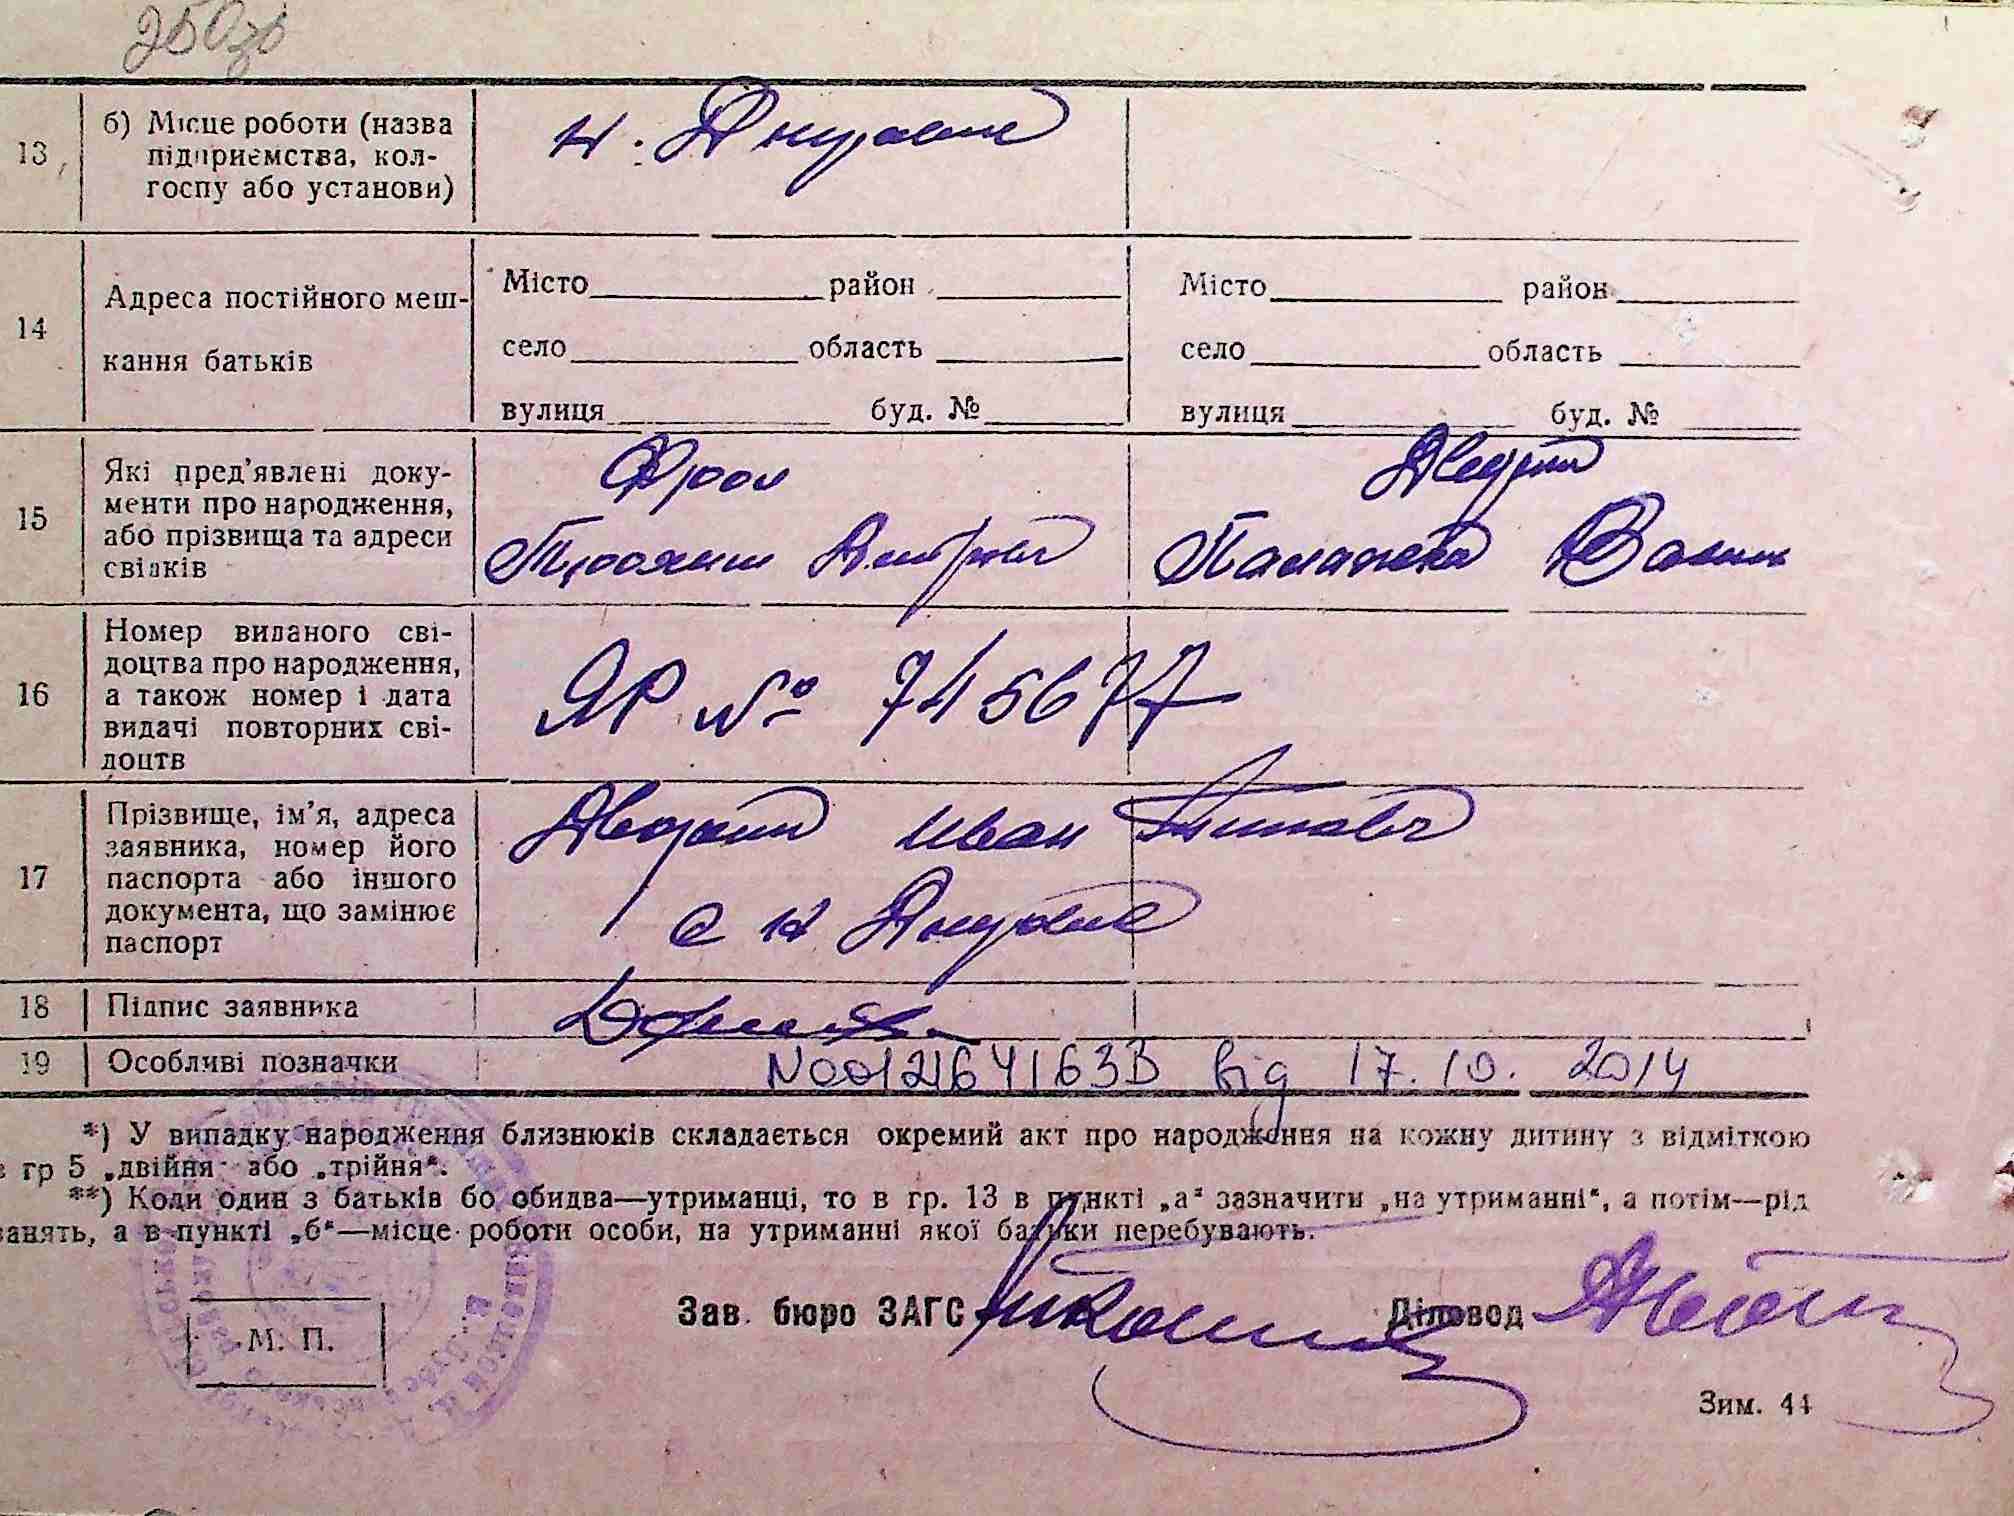 13
б) Місце роботи (назва
підприємства, кол-
госпу або установи)
14
Адреса постійного меш-
кання батьків
Місто район
село область
вулиця буд. №
Місто район
село область
вулиця буд. №
15
Які пред'явлені доку-
менти про народження,
або прізвища та адреси
свідків
Фрол
16
Номер виданого сві-
доцтва про народження,
а також номер і дата
видачі повторних сві-
доцтв
ЯР № 745677
17
Прізвище, ім'я, адреса
заявника, номер його
паспорта або іншого
документа, що замінює
паспорт
Иван
18
Підпис заявника
19
Особливі позначки
від 17.10.2014
*) У випадку народження близнюків складається окремий акт про народження на кожну дитину з відміткою
гр 5 „двійня" або „трійня".
**) Коли один з батьків бо обидва—утриманці, то в гр. 13 в пункті „а" зазначити „на утриманні", а потім—рід
занять, а в пункті „б"—місце роботи особи, на утриманні якої батьки перебувають.
М. П.
Зав. бюро ЗАГС
Діловод
Зим. 44